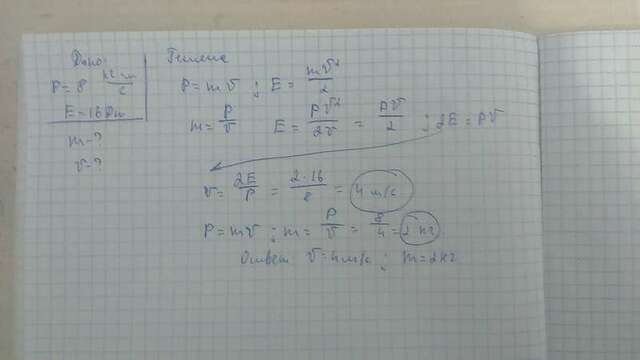 Дано:
P = 8 кг м/с
E = 16 Дж
m - ?
v - ?
Решение
P = mv ; E = mv²/2
m = P/v   E = Pv²/2v = Pv/2 ; 2E = Pv
v = 2E/P = 2·16/8 = 4 м/с
P = mv ; m = P/v = 8/4 = 2 кг
Ответ v = 4м/с ; m = 2кг